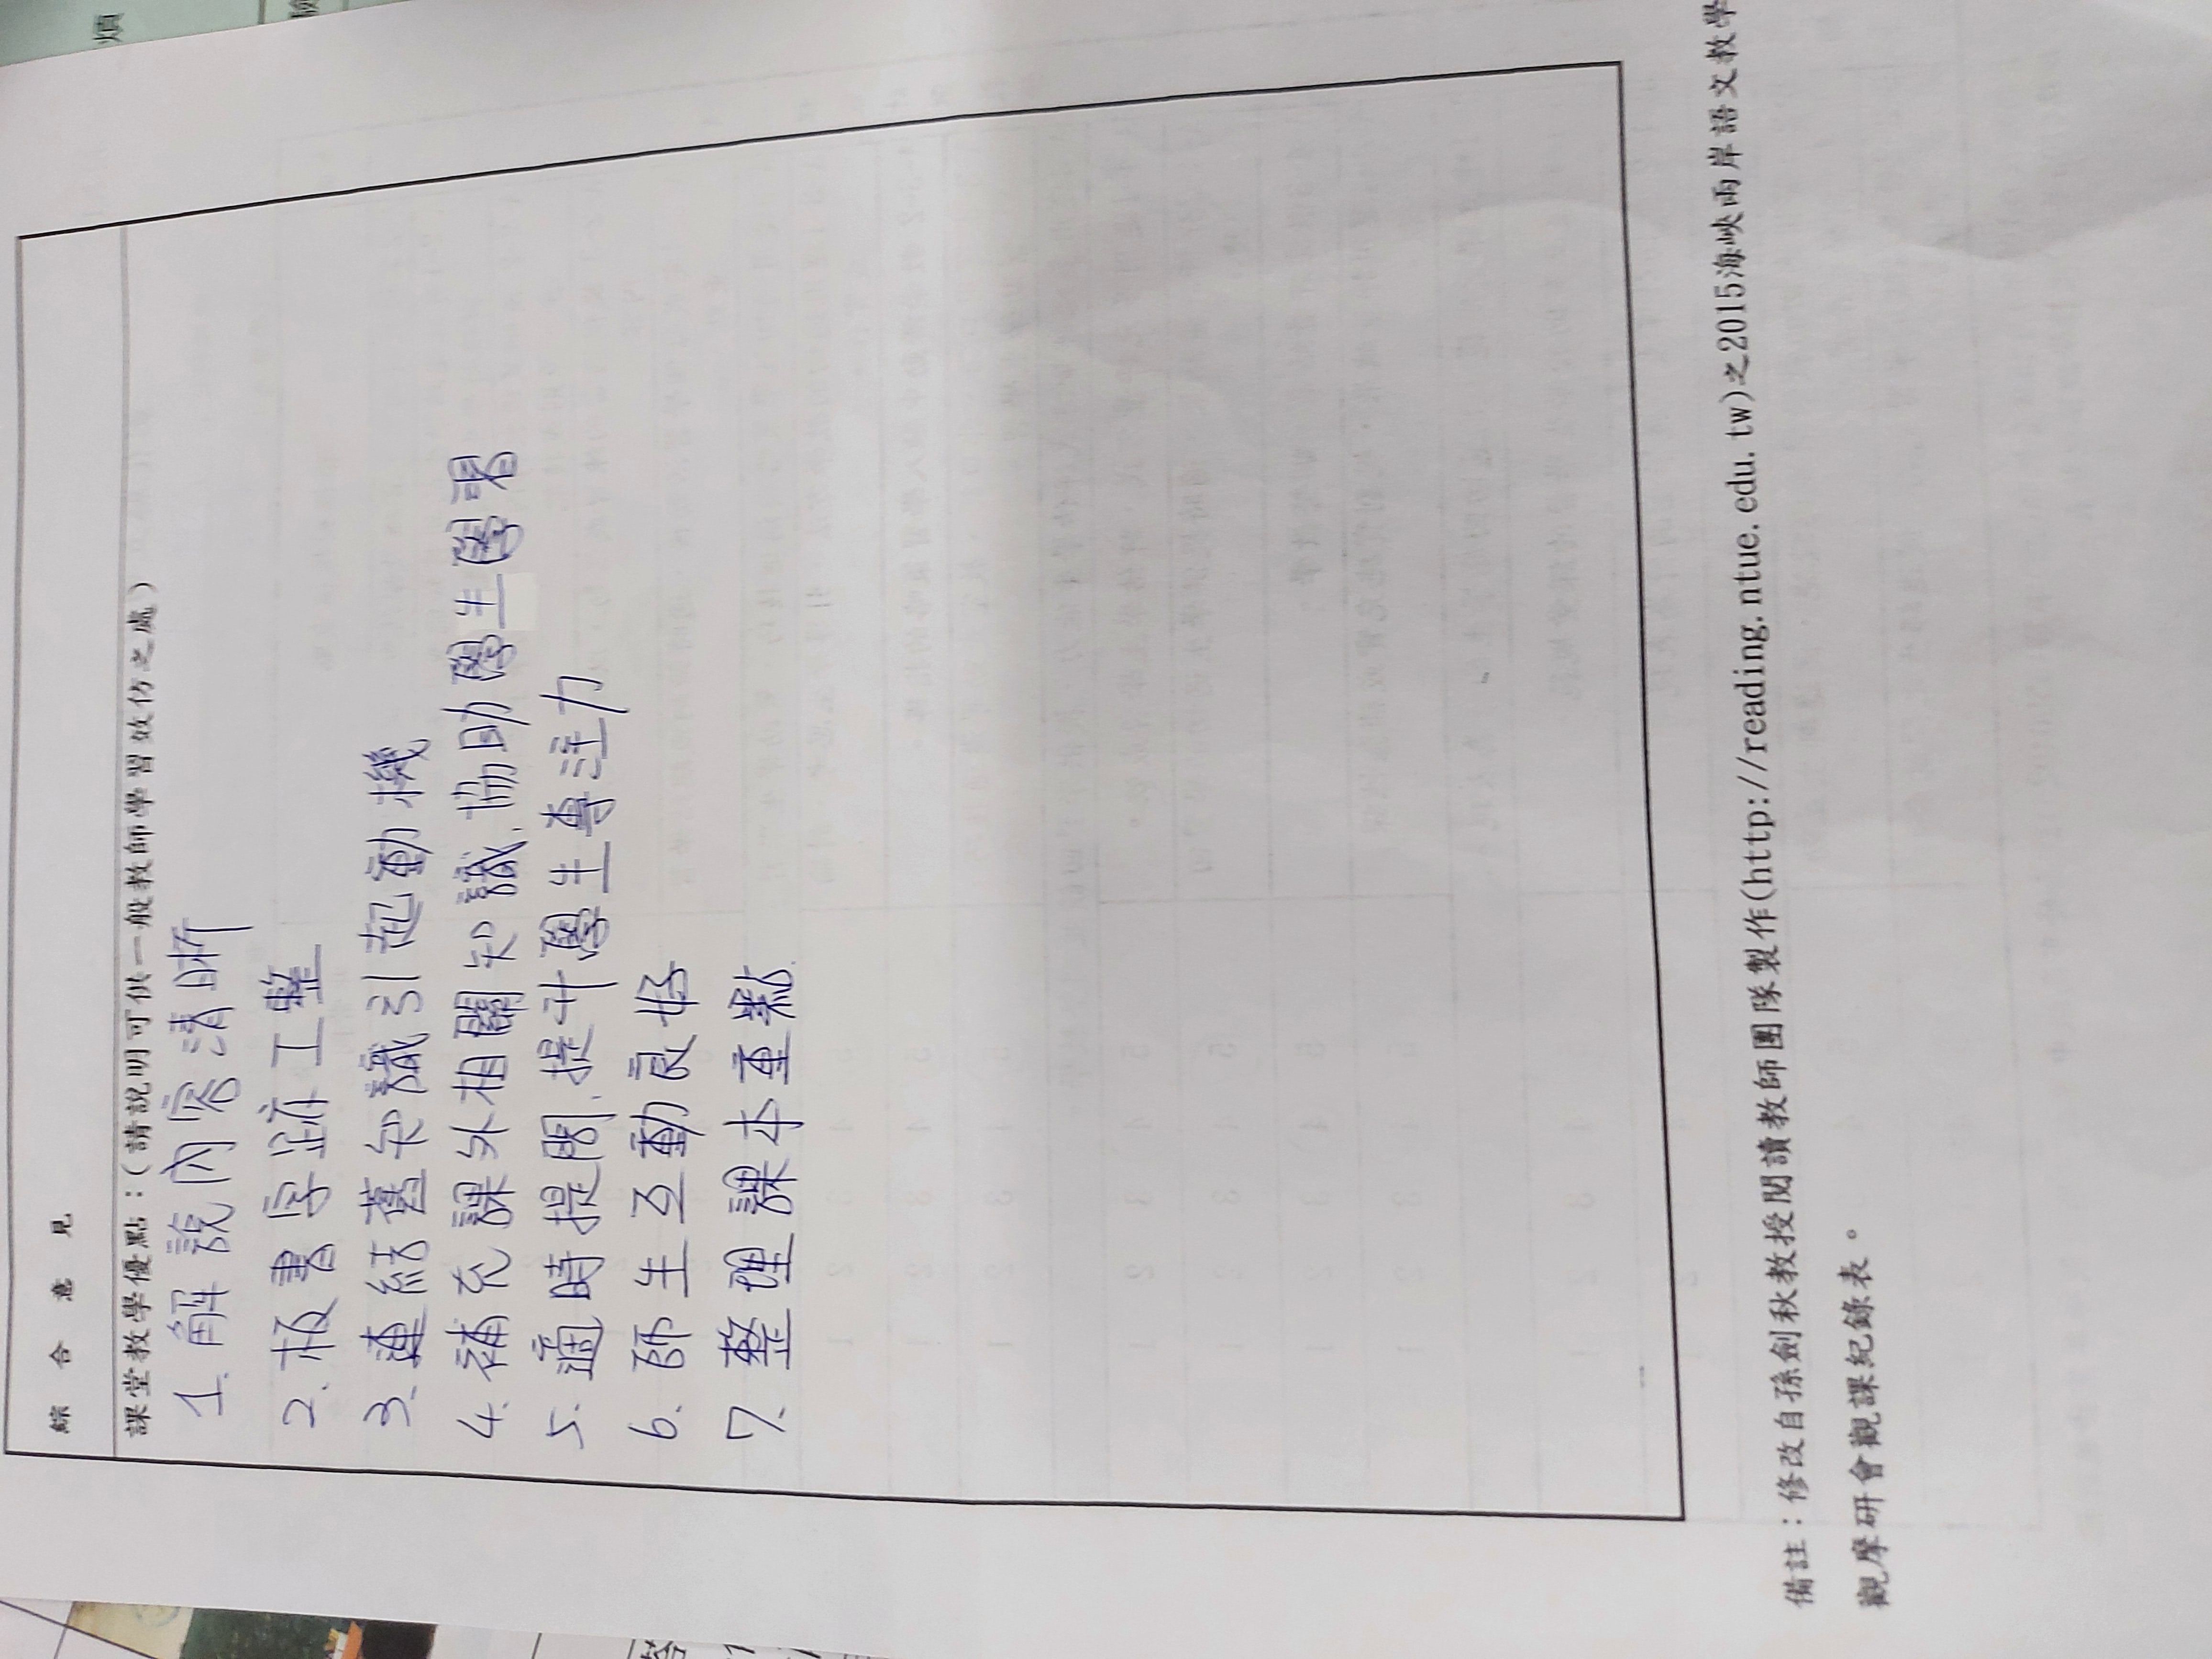 綜合意見
課堂教學優點：(請說明可供一般教師學習效仿之處)
1. 解說內容清晰
2. 板書字跡工整
3. 連結舊知識引起動機
4. 補充課外相關知識、協助學生學習
5. 適時提問、提升學生專注力
6. 師生互動良好
7. 整理課本重點
備註：修改自孫劍秋教授閱讀教師團隊製作(http://reading.ntue.edu.tw)之2015海峽兩岸語文教學
觀摩研會觀課紀錄表。